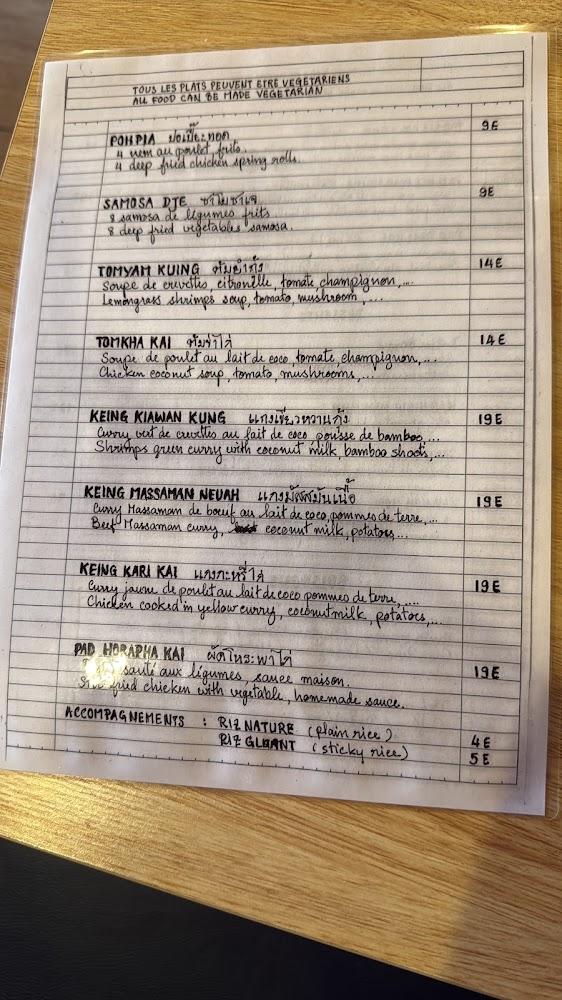 TOUS LES PLATS PEUVENT ETRE VEGETARIENS
ALL FOOD CAN BE MADE VEGETARIAN
POHPIA ปอเปี๊ยะทอด 9E
4 nem au poulet frits.
4 deep fried chicken spring rolls.
SAMOSA DJE ซาโมซาเจ 9E
8 samosa de légumes frits
8 deep fried vegetables samosa.
TOMYAM KUING ต้มยำกุ้ง 14E
Soupe de crevettes, citronelle, tomate, champignon,...
Lemongrass shrimps soup, tomato, mushroom,...
TOMKHA KAI ต้มข่าไก่ 14E
Soupe de poulet au lait de coco, tomate, champignon,...
Chicken coconut soup, tomato, mushrooms,...
KEING KIAWAN KUNG แกงเขียวหวานกุ้ง 19E
Curry vert de crevettes au lait de coco, pousse de bambou,...
Shrimps green curry with coconut milk, bamboo shoots,...
KEING MASSAMAN NEUAH แกงมัสสมันเนื้อ 19E
Curry Massaman de boeuf au lait de coco, pommes de terre,...
Beef Massaman curry, coconut milk, potatoes,...
KEING KARI KAI แกงกะหรี่ไก่ 19E
Curry jaune de poulet au lait de coco pommes de terre,....
Chicken cooked in yellow curry, coconut milk, potatoes,...
PAD HORAPHA KAI ผัดโหระพาไก่ 19E
sauté aux légumes, sauce maison.
fried chicken with vegetable, homemade sauce.
ACCOMPAGNEMENTS : RIZ NATURE (plain rice) 4E
RIZ GLUANT (sticky rice) 5E